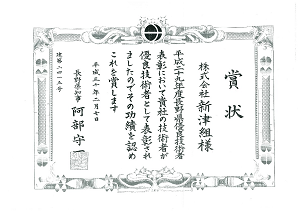 賞状
株式会社 新津組様
平成二十九年度長野県優良技術者
表彰において貴社の技術者が
優良技術者として表彰され
ましたのでその功績を認め
これを賞します
平成三十年二月七日
長野県知事 阿部守一